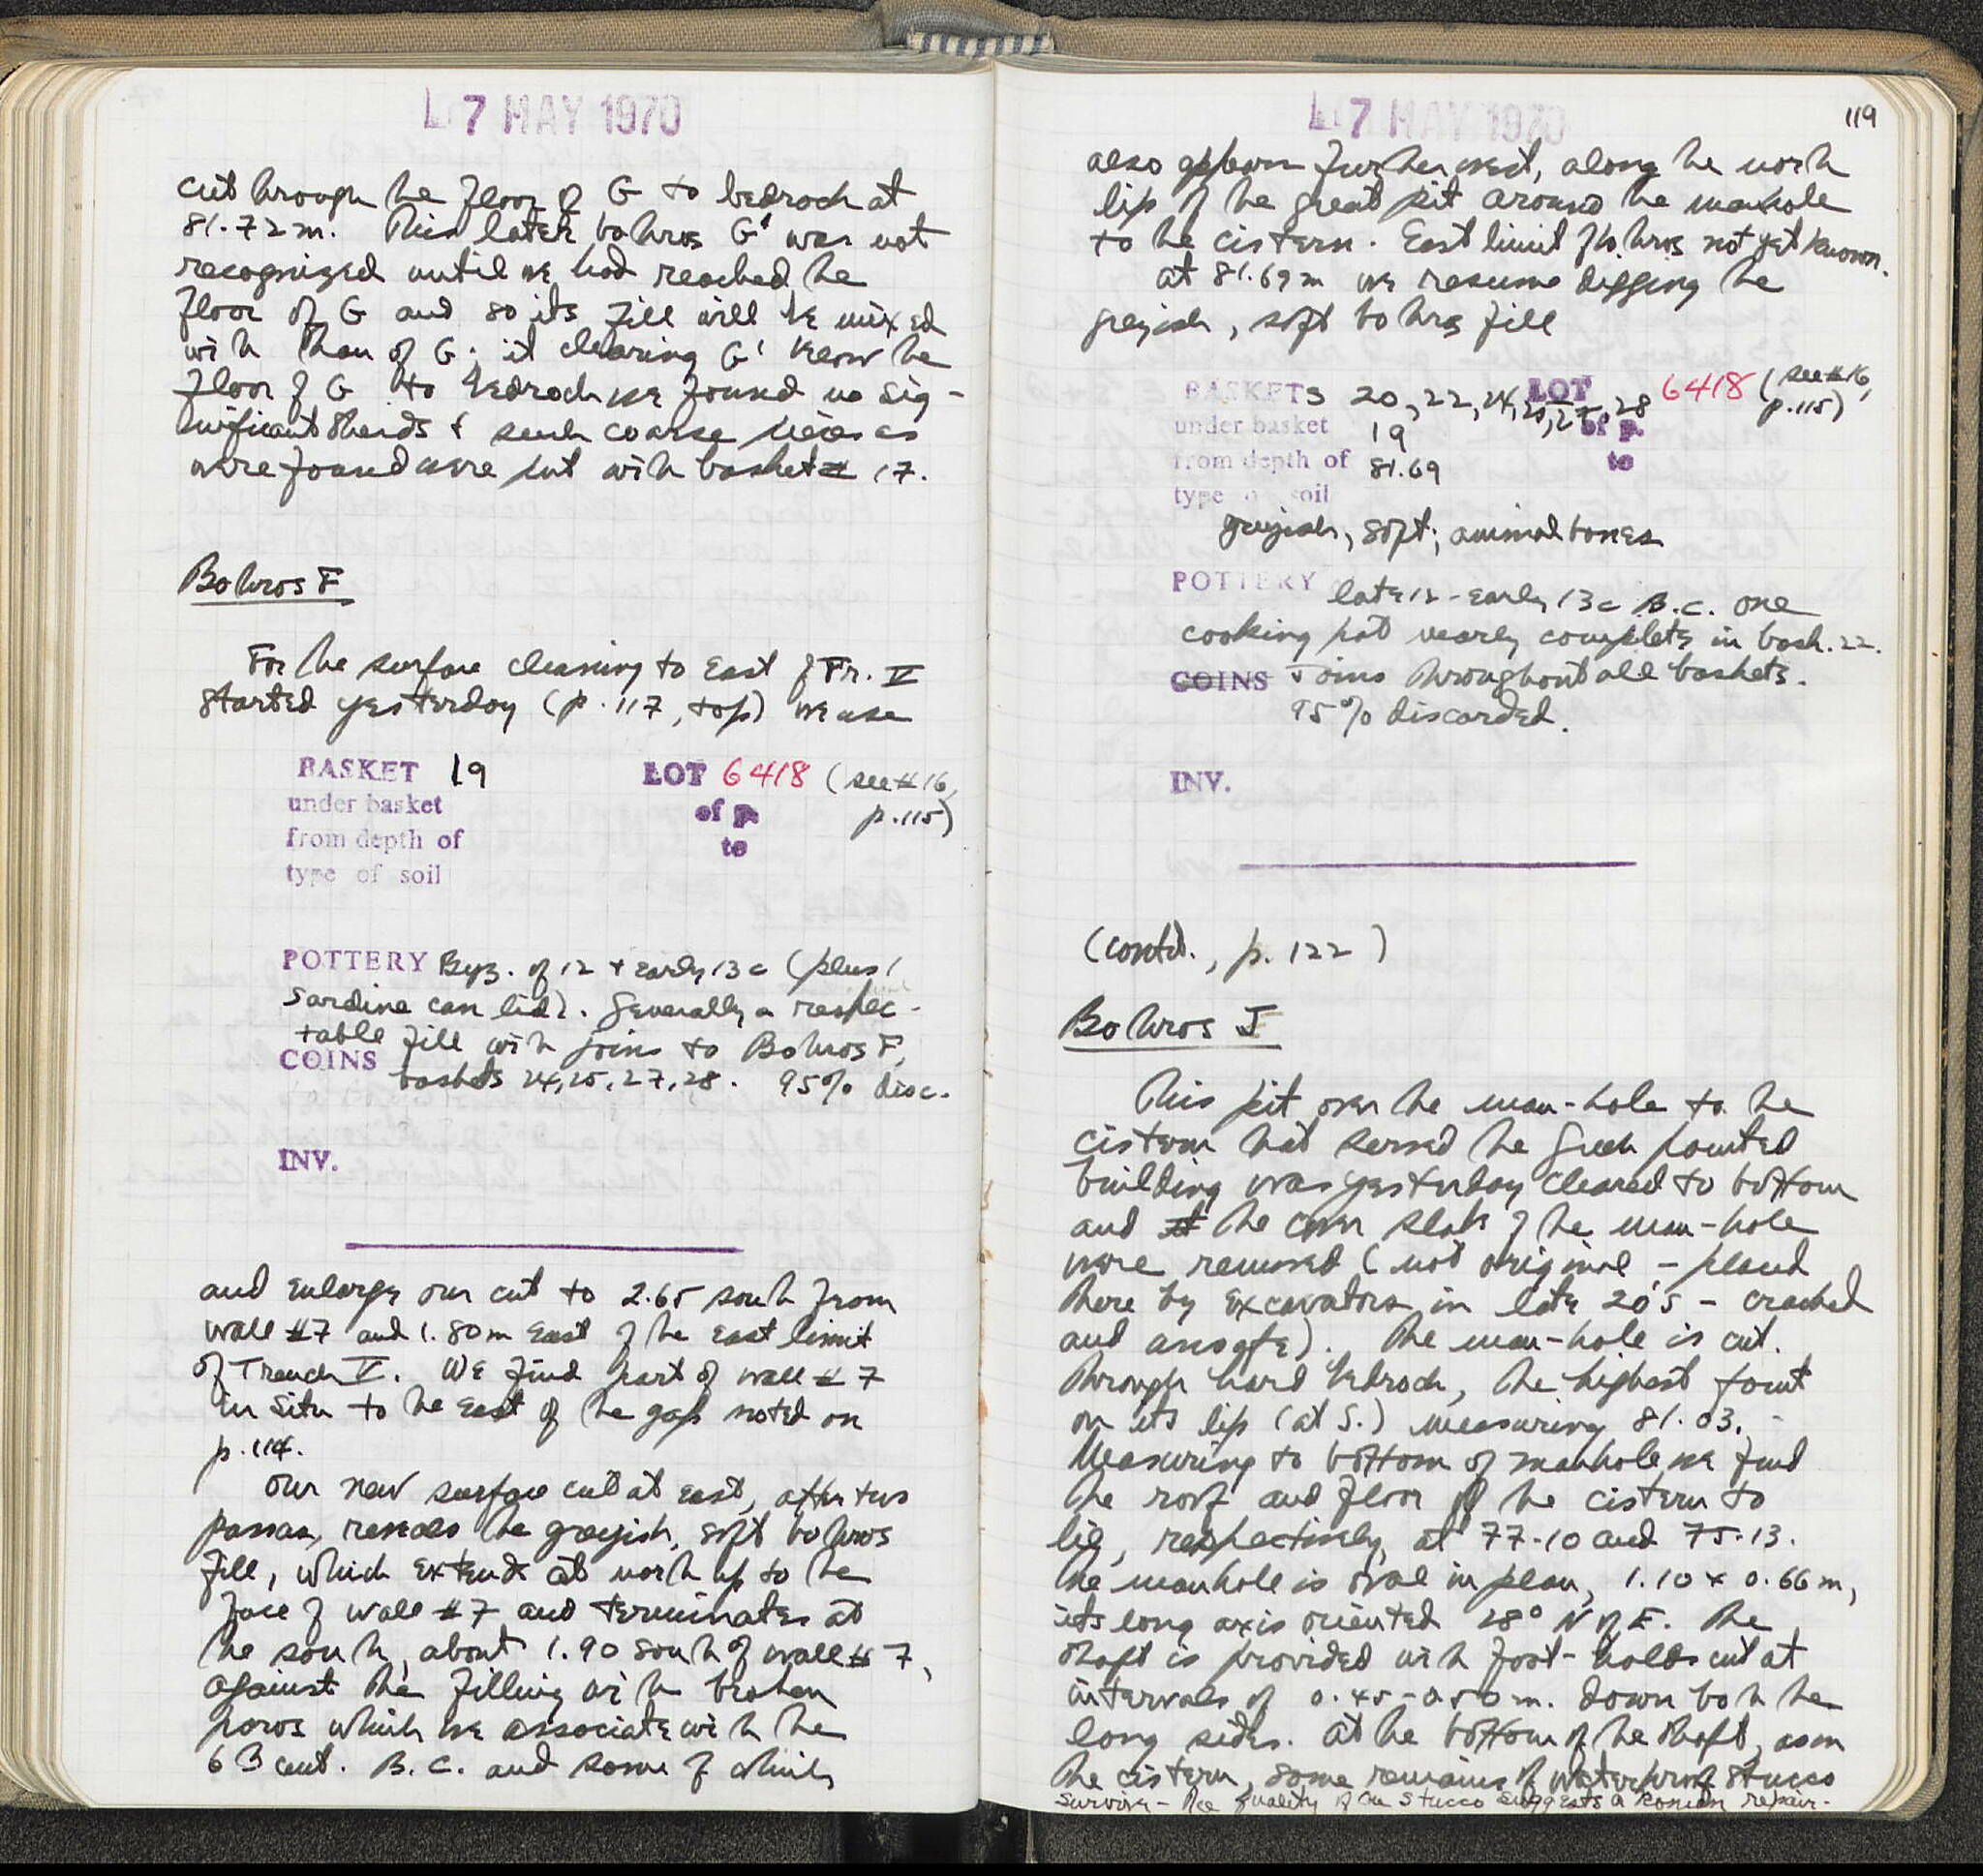 L 7 MAY 1970
cut through the floor of G to bedrock at
81.72 m. This later bothros G' was not
recognized until we had reached the
floor of G and so its fill will be mixed
with than of G; it clearing G' below the
floor of G to bedrock we found no sig-
nificant sherds & such coarse pieces as
were found were put with basket # 17.
Bothros F
For the surface cleaning to East of Tr. V
started yesterday (p. 117, top) we use
BASKET 19 LOT 6418 (see # 16,
under basket of p. p. 115)
from depth of to
type of soil
POTTERY Byz. of 12 + early 13 c (plus 1
sardine can lid). Generally a respec-
table fill with joins to Bothros F,
COINS baskets 24, 25, 27, 28. 95% disc.
INV.
and enlarge our cut to 2.65 south from
wall #7 and 1.80 m East of the east limit
of Trench V. We find part of wall # 7
in situ to the East of the gap noted on
p. 114.
Our new surface cut at east, after two
passes, reveals the greyish, soft bothros
fill, which extends at north up to the
face of wall #7 and terminates at
the south, about 1.90 south of wall # 7,
against the filling with broken
poros which we associate with the
6th cent. B.C. and some of which
L 7 MAY 1970
119
also appears further west, along the north
lip of the great pit around the manhole
to the cistern. East limit of bothros not yet known.
at 81.69 m we resume digging the
greyish, soft bothros fill
BASKETS 20, 22, 24, 25, 27, 28 LOT 6418 (see # 16,
under basket 19 of p. p. 115)
from depth of 81.69 to
type of soil
greyish, soft; animal bones
POTTERY late 12 - early 13 c B.C. one
cooking pot nearly complete in bask. 22.
COINS Joins throughout all baskets.
95% discarded.
INV.
(contd., p. 122)
Bothros J
This pit over the man-hole to the
cistern that served the Greek painted
building was yesterday cleared to bottom
and the cover slabs of the man-hole
were removed (not original - placed
there by excavators in late 20's - cracked
and unsafe). The man-hole is cut
through hard bedrock, the highest point
on its lip (at S.) measuring 81.03.
Measuring to bottom of manhole we find
the roof and floor of the cistern to
lie, respectively, at 77.10 and 75.13.
The manhole is oval in plan, 1.10 x 0.66 m,
its long axis oriented 28° N of E. The
shaft is provided with foot-holds cut at
intervals of 0.45-0.50 m. down both the
long sides. At the bottom of the shaft, as in
the cistern, some remains of waterproof stucco
survive - the quality of the stucco suggests a Roman repair.